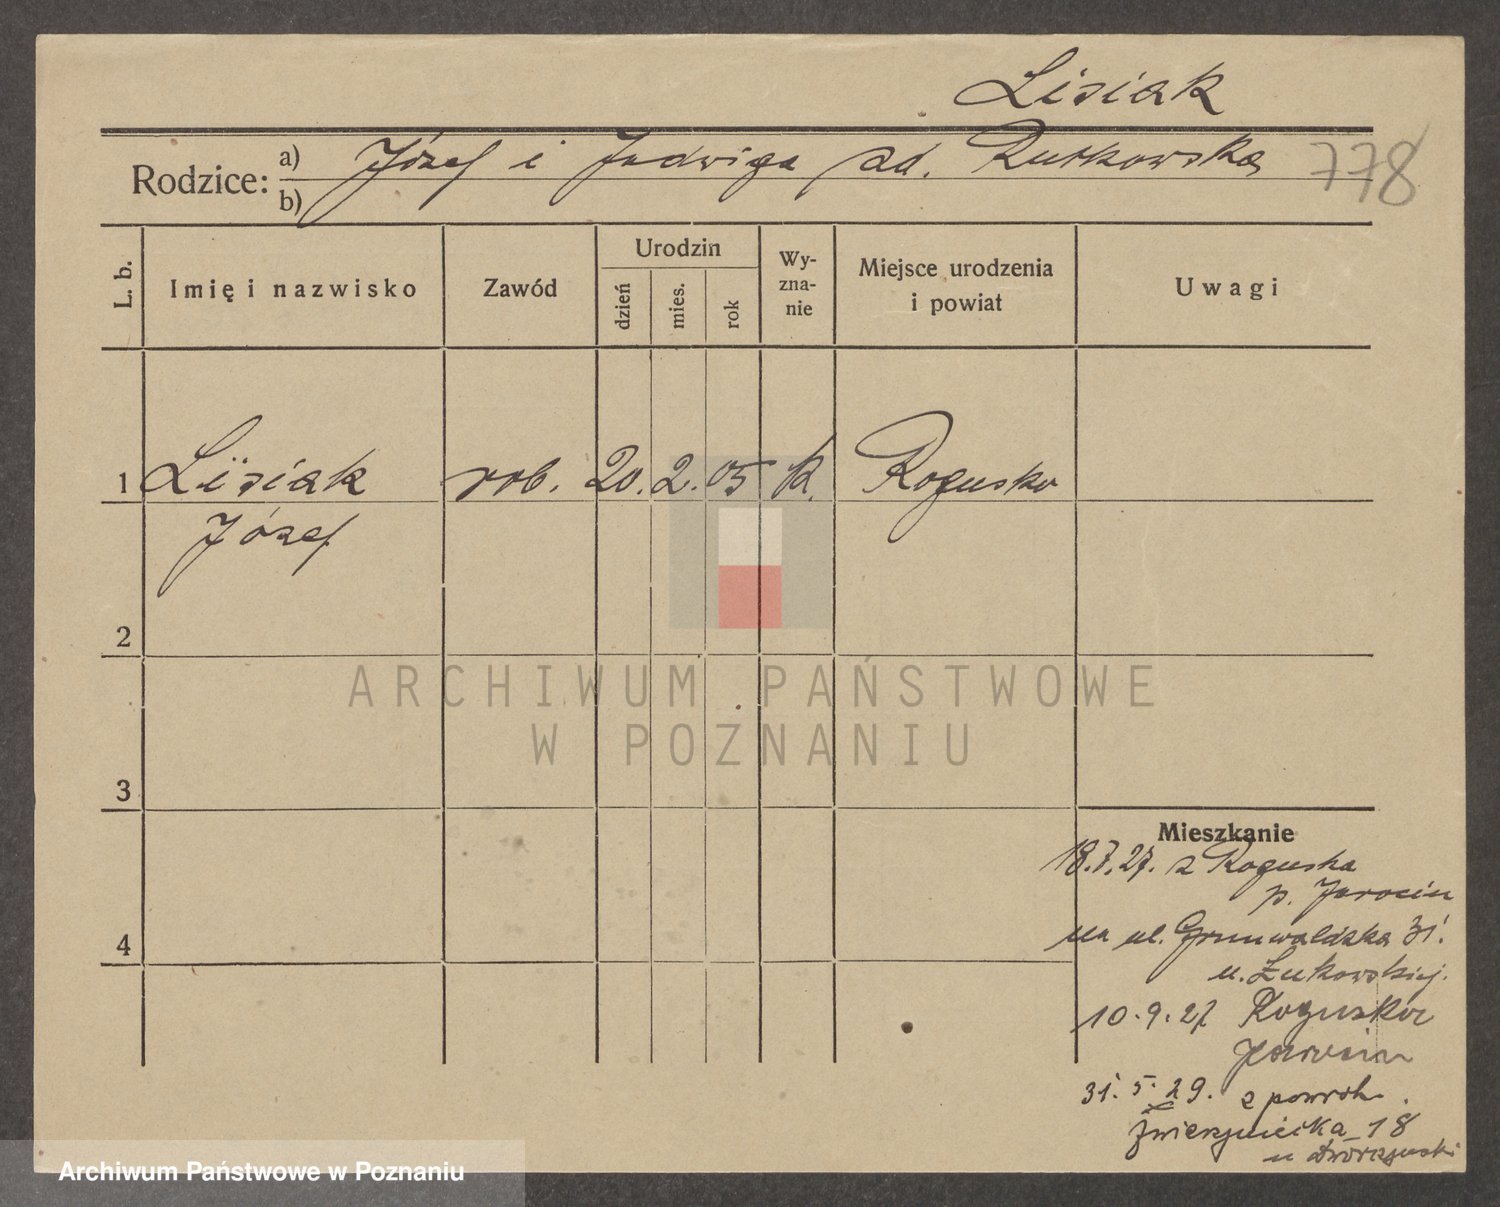 Lisiak
Rodzice: a) Józef i Jadwiga zd. Rutkowska
b)
778
L. b.
Imię i nazwisko
Zawód
Urodzin
dzień
mies.
rok
Wy-
zna-
nie
Miejsce urodzenia
i powiat
Uwagi
1 Lisiak rob. 20. 2. 05 k. Rogusko
Józef
2
ARCHIWUM PAŃSTWOWE
W POZNANIU
3
Mieszkanie
18.7.27. z Roguska
p. Jarocin
na ul. Grunwaldzka 31.
u. Żukowskiej.
4
10.9.27 Rogusko
Jarocin
31.5.29. z powrot.
Zwierzyniecka 18
u
Archiwum Państwowe w Poznaniu